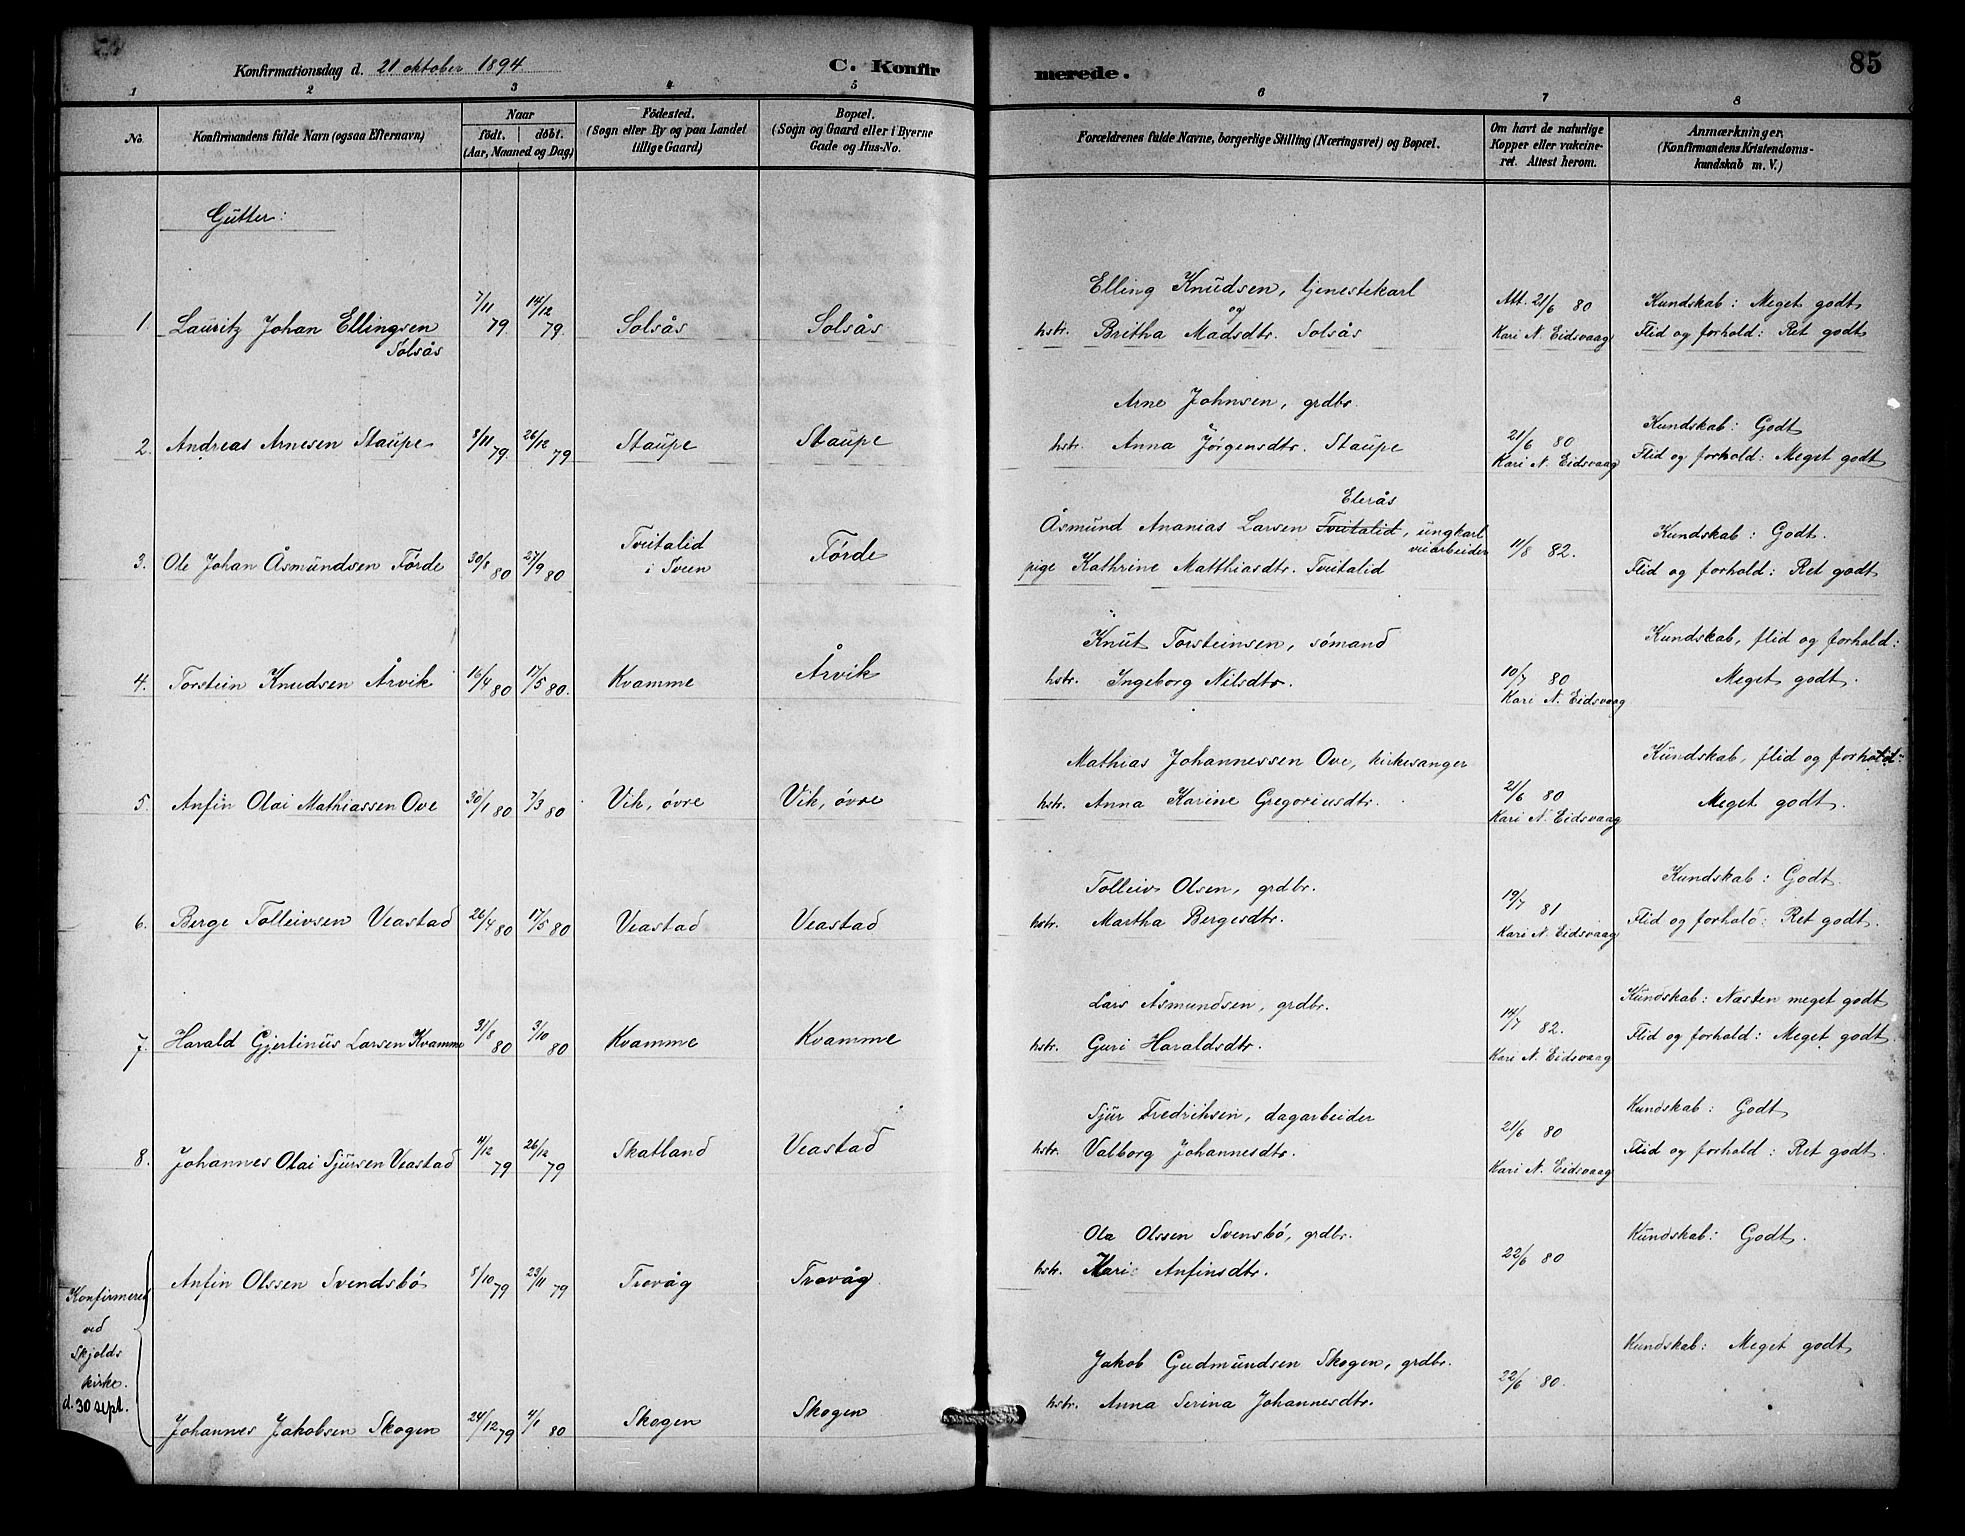 Konfirmationsdag d. 21 oktober 1894
C. Konfirmerede.
85
1 2 3 4 5 6 7 8
No.
Konfirmandens fulde Navn (ogsaa Efternavn)
Naar
født. døbt.
(Aar, Maaned og Dag)
Fødested.
(Sogn eller By og paa Landet
tillige Gaard)
Bopæl.
(Sogn og Gaard eller i Byerne
Gade og Hus-No.
Forældrenes fulde Navne, borgerlige Stilling (Næringsvei) og Bopæl.
Om havt de naturlige
Kopper eller vakcine-
ret. Attest herom.
Anmærkninger,
(Konfirmandens Kristendoms-
kundskab m. V.)
Gutter:
1. Lauritz Johan Ellingsen Solsås 7/11 79. 14/12 79. Solsås Solsås
Elling Knudsen, tjenestekarl
og
hstr. Britha Madsdtr. Solsås
Att. 21/6 80
Kari N. Eidsvaag
Kundskab: Meget godt
Flid og forhold: Ret godt
2. Andreas Arnesen Staupe 8/11 79. 26/12 79 Staupe Staupe
Arne Johnsen, grdbr.
hstr. Anna Jørgensdtr. Staupe
21/6 80
Kari N. Eidsvaag
Kundskab: Godt
Flid og forhold: Meget godt
3. Ole Johan Åsmundsen Førde 30/8 80 27/9 80 Tveitalid
i Sveen Førde
Elerås
Åsmund Ananias Larsen Tveitalid, ungkarl
veiarbeider
pige Kathrine Matthiasdtr. Tveitalid
11/8 82.
Kundskab: Godt.
Flid og forhold: Ret godt
4. Torstein Knudsen Årvik 16/4 80 17/5 80. Kvamme Årvik
Knut Torsteinsen, sømand
hstr. Ingeborg Nilsdtr.
10/7 80
Kari N. Eidsvaag
Kundskab, flid og forhold:
Meget godt.
5. Anfin Olai Mathiassen Ove 30/1 80 7/3 80 Vik, øvre Vik, øvre
Mathias Johannessen Ove, kirkesanger
hstr. Anna Karine Gregoriusdtr.
21/6 80
Kari N. Eidsvaag
Kundskab, flid og forhold:
Meget godt.
6. Berge Tolleivsen Veastad 26/4 80 17/5 80 Veastad Veastad
Tolleiv Olsen, grdbr.
hstr. Martha Bergesdtr.
19/7 81
Kari N. Eidsvaag
Kundskab: Godt.
Flid og forhold: Ret godt.
7. Harald Gjertinus Larsen Kvamme 31/8 80 3/10 80 Kvamme Kvamme
Lars Åsmundsen, grdbr.
hstr. Guri Haraldsdtr.
14/7 82.
Kari N. Eidsvaag
Kundskab: Næsten meget godt
Flid og forhold: Meget godt.
8. Johannes Olai Sjursen Veastad 4/12 79 26/12 79 Skatland Veastad
Sjur Fredriksen, dagarbeider
hstr. Valborg Johannesdtr.
21/6 80
Kari N. Eidsvaag
Kundskab: Godt
Flid og forhold: Ret godt.
Konfirmeret
ved
Skjolds
kirke.
d. 30 sept.
Anfin Olssen Svendsbø 8/10 79 23/11 79 Trovåg Trovåg
Ola Olssen Svensbø, grdbr.
hstr. Kari Anfinsdtr.
22/6 80
Kundskab: Godt.
Johannes Jakobsen Skogen 24/12 79 4/1 80 Skogen Skogen
Jakob Gudmundsen Skogen, grdbr.
hstr. Anna Serina Johannesdtr.
22/6 80.
Kundskab: Meget godt